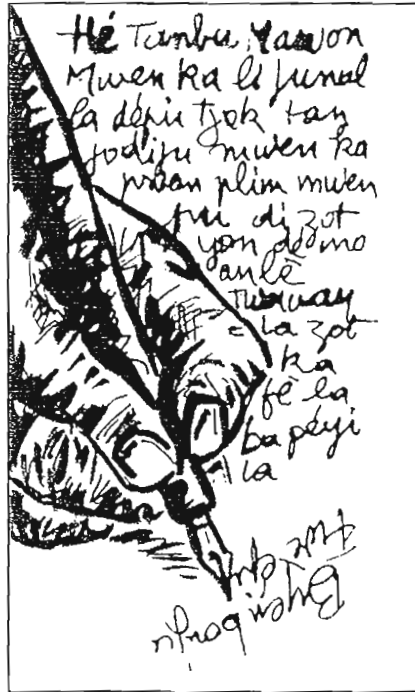 Hé Tanbu Mawon
Mwen ka li junal
la dépiu tjek tan
jodiju mwen ka
pwan plim mwen
pu di zot
yon dé mo
anlè
twavay
-la zot
ka
fè la
ba péyi
la